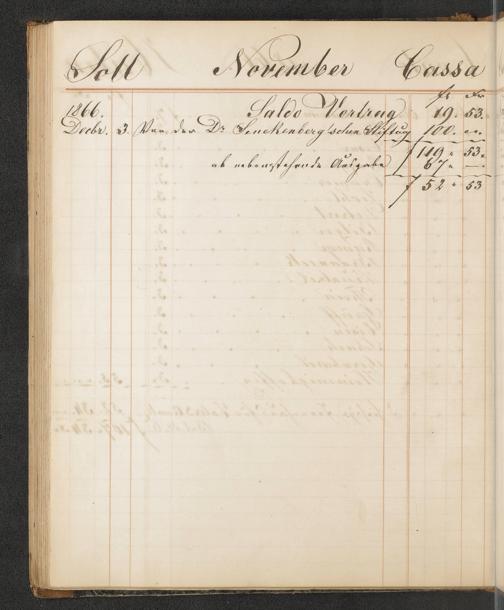 Soll November Cassa
fr Xr
1866. Saldo Vortrag 19. 53.
Decbr. 3. Von der Dr. Senckenberg'schen Stiftug 100. —
f 119. 53.
ab nebenstehende Ausgabe 67. —
f 52. 53